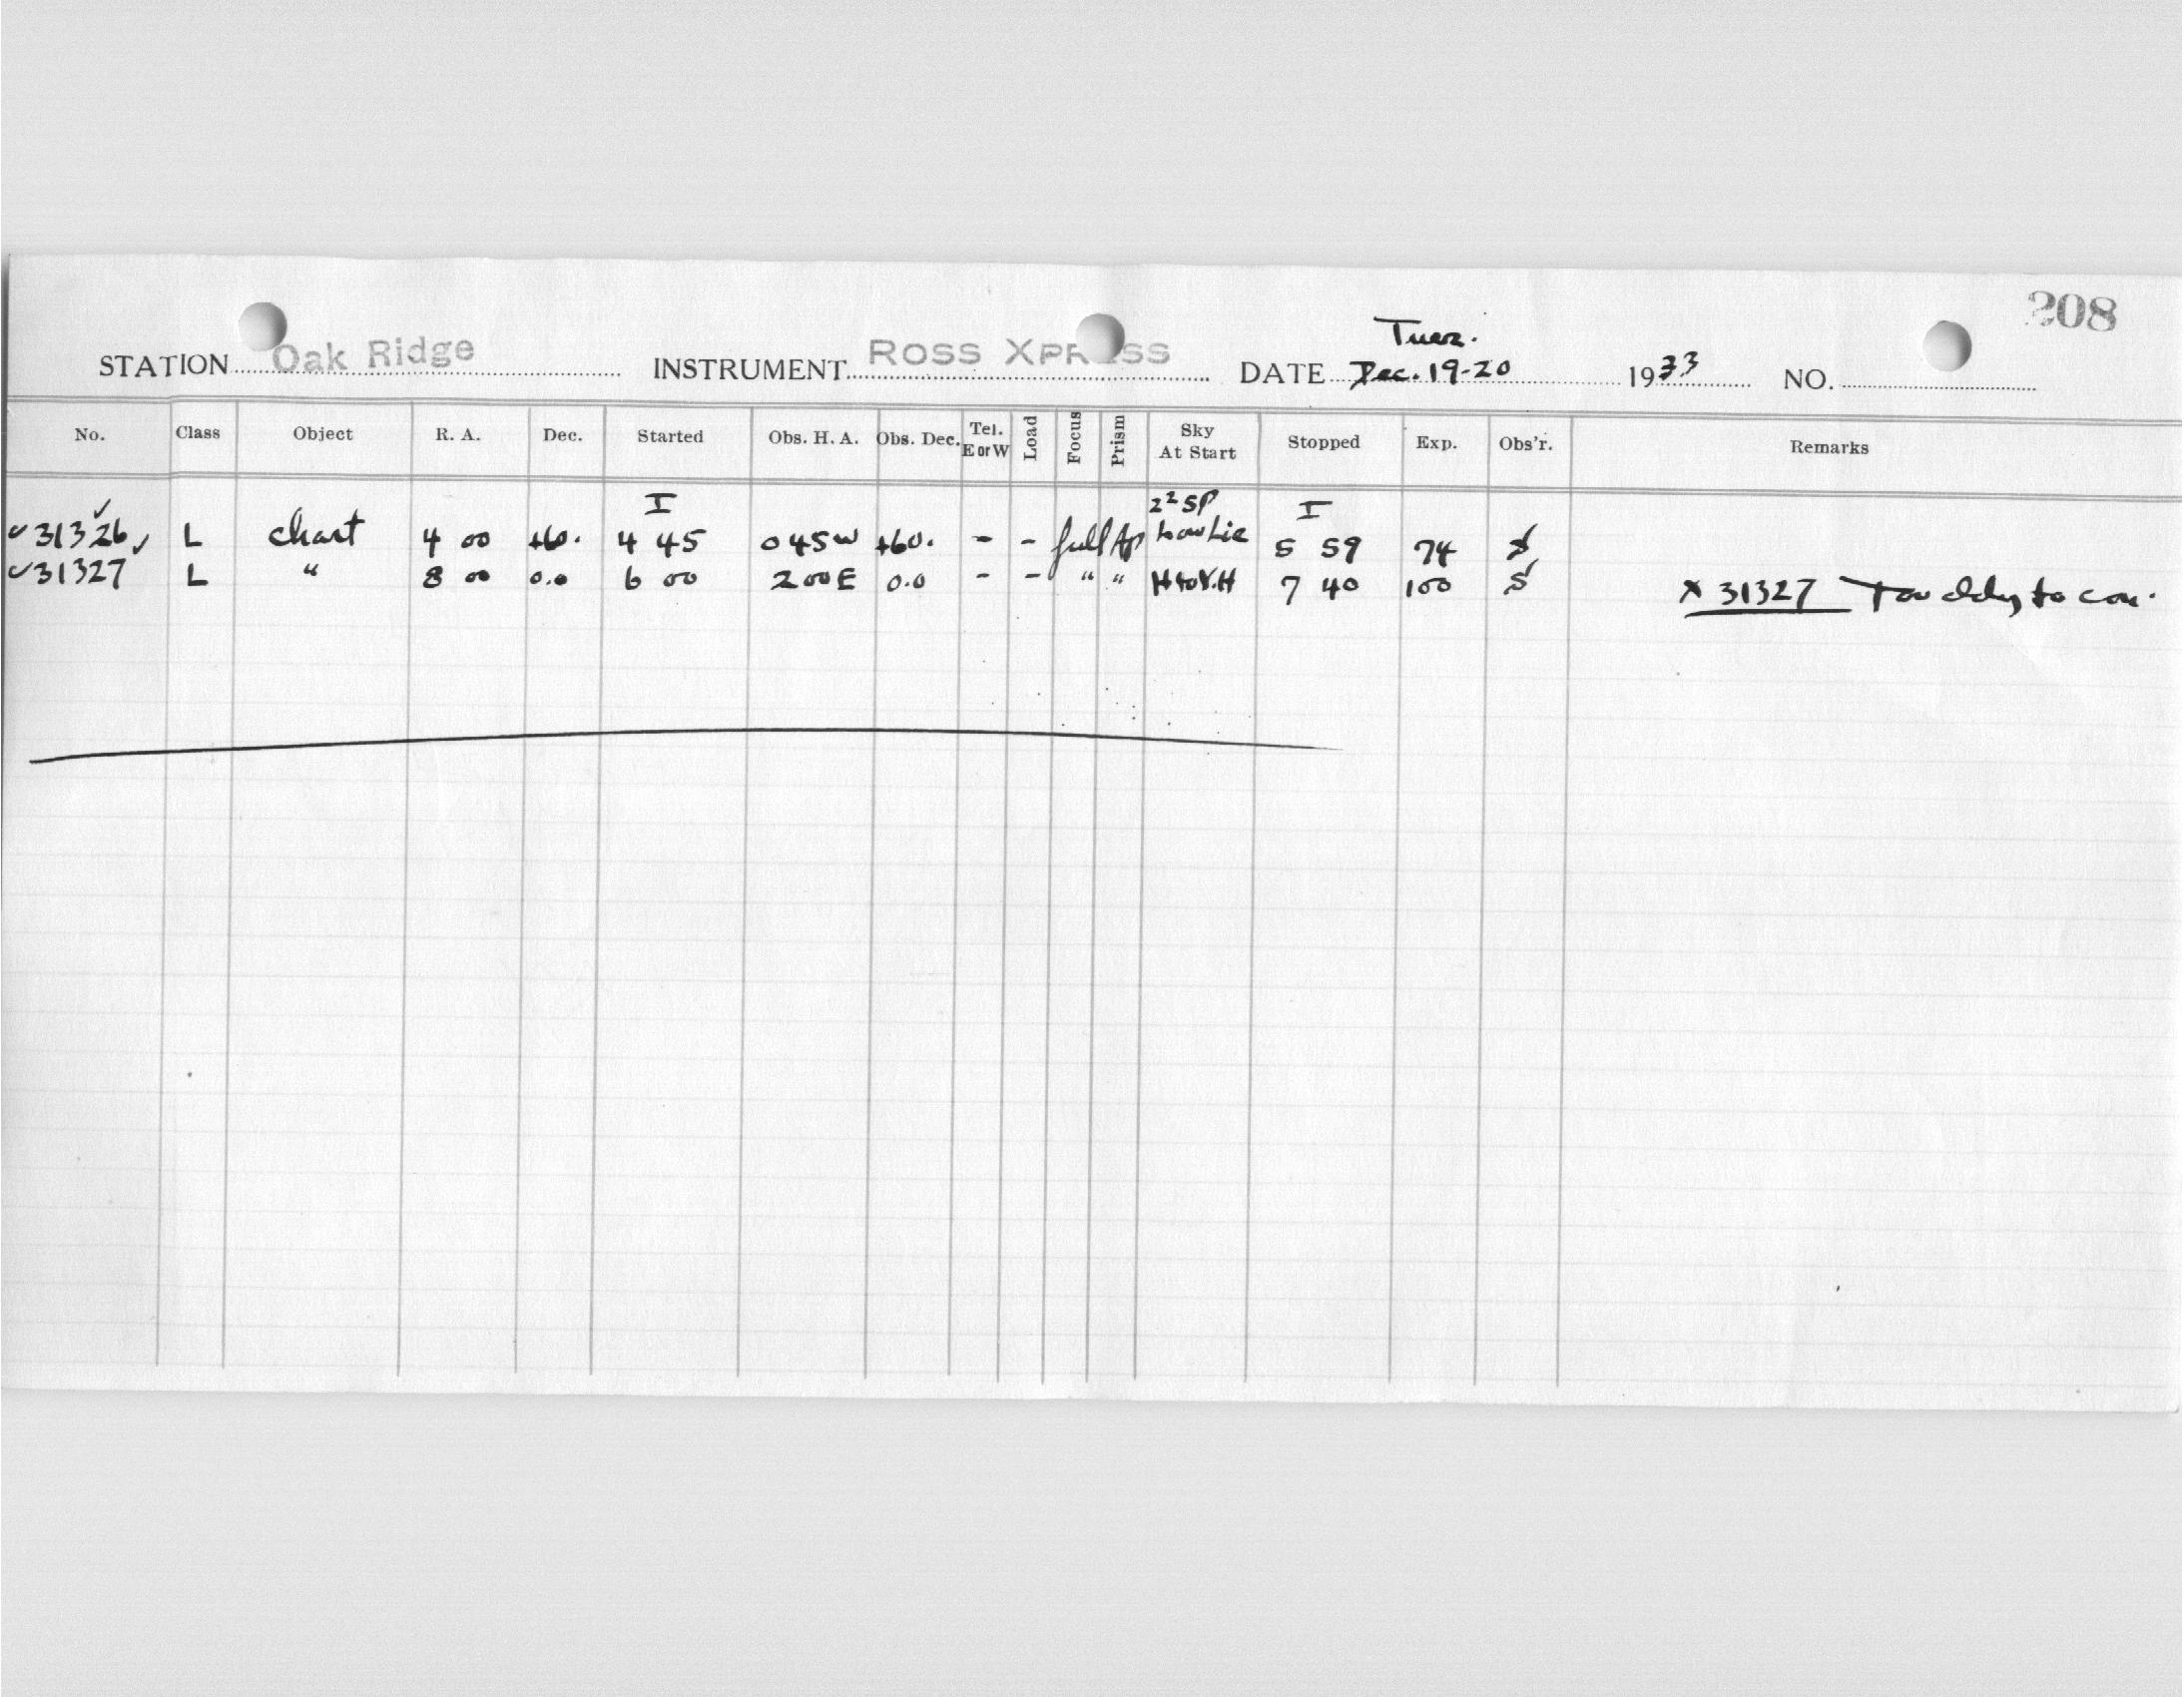 208
Tues.
STATION Oak Ridge INSTRUMENT ROSS XPRESS DATE Dec. 19-20 1933 NO.
No. Class Object R. A. Dec. Started Obs. H. A. Obs. Dec. Tel. E or W Load Focus Prism Sky At Start Stopped Exp. Obs'r. Remarks
I I
31326 L chart 4 00 +60. 4 45 0 45 W +60. - - full Ap 5 59 74 S
31327 L " 8 00 0.0 6 00 2 00 E 0.0 - - " " 7 40 100 S x 31327 to con.